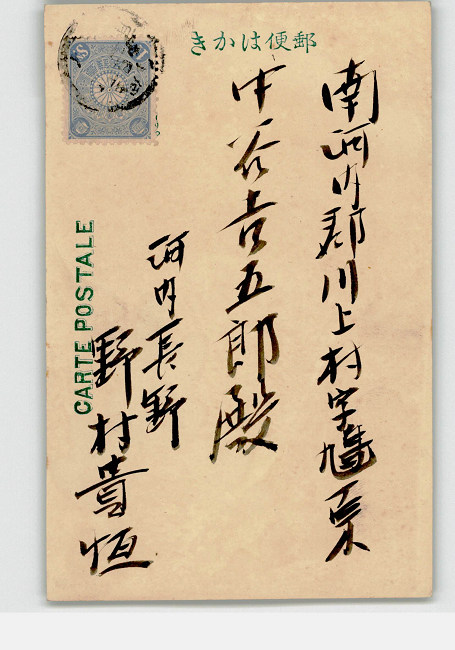 郵便はかき
南河内郡川上村字鳩原
中谷吉五郎殿
河内長野
野村貴恒
CARTE POSTALE